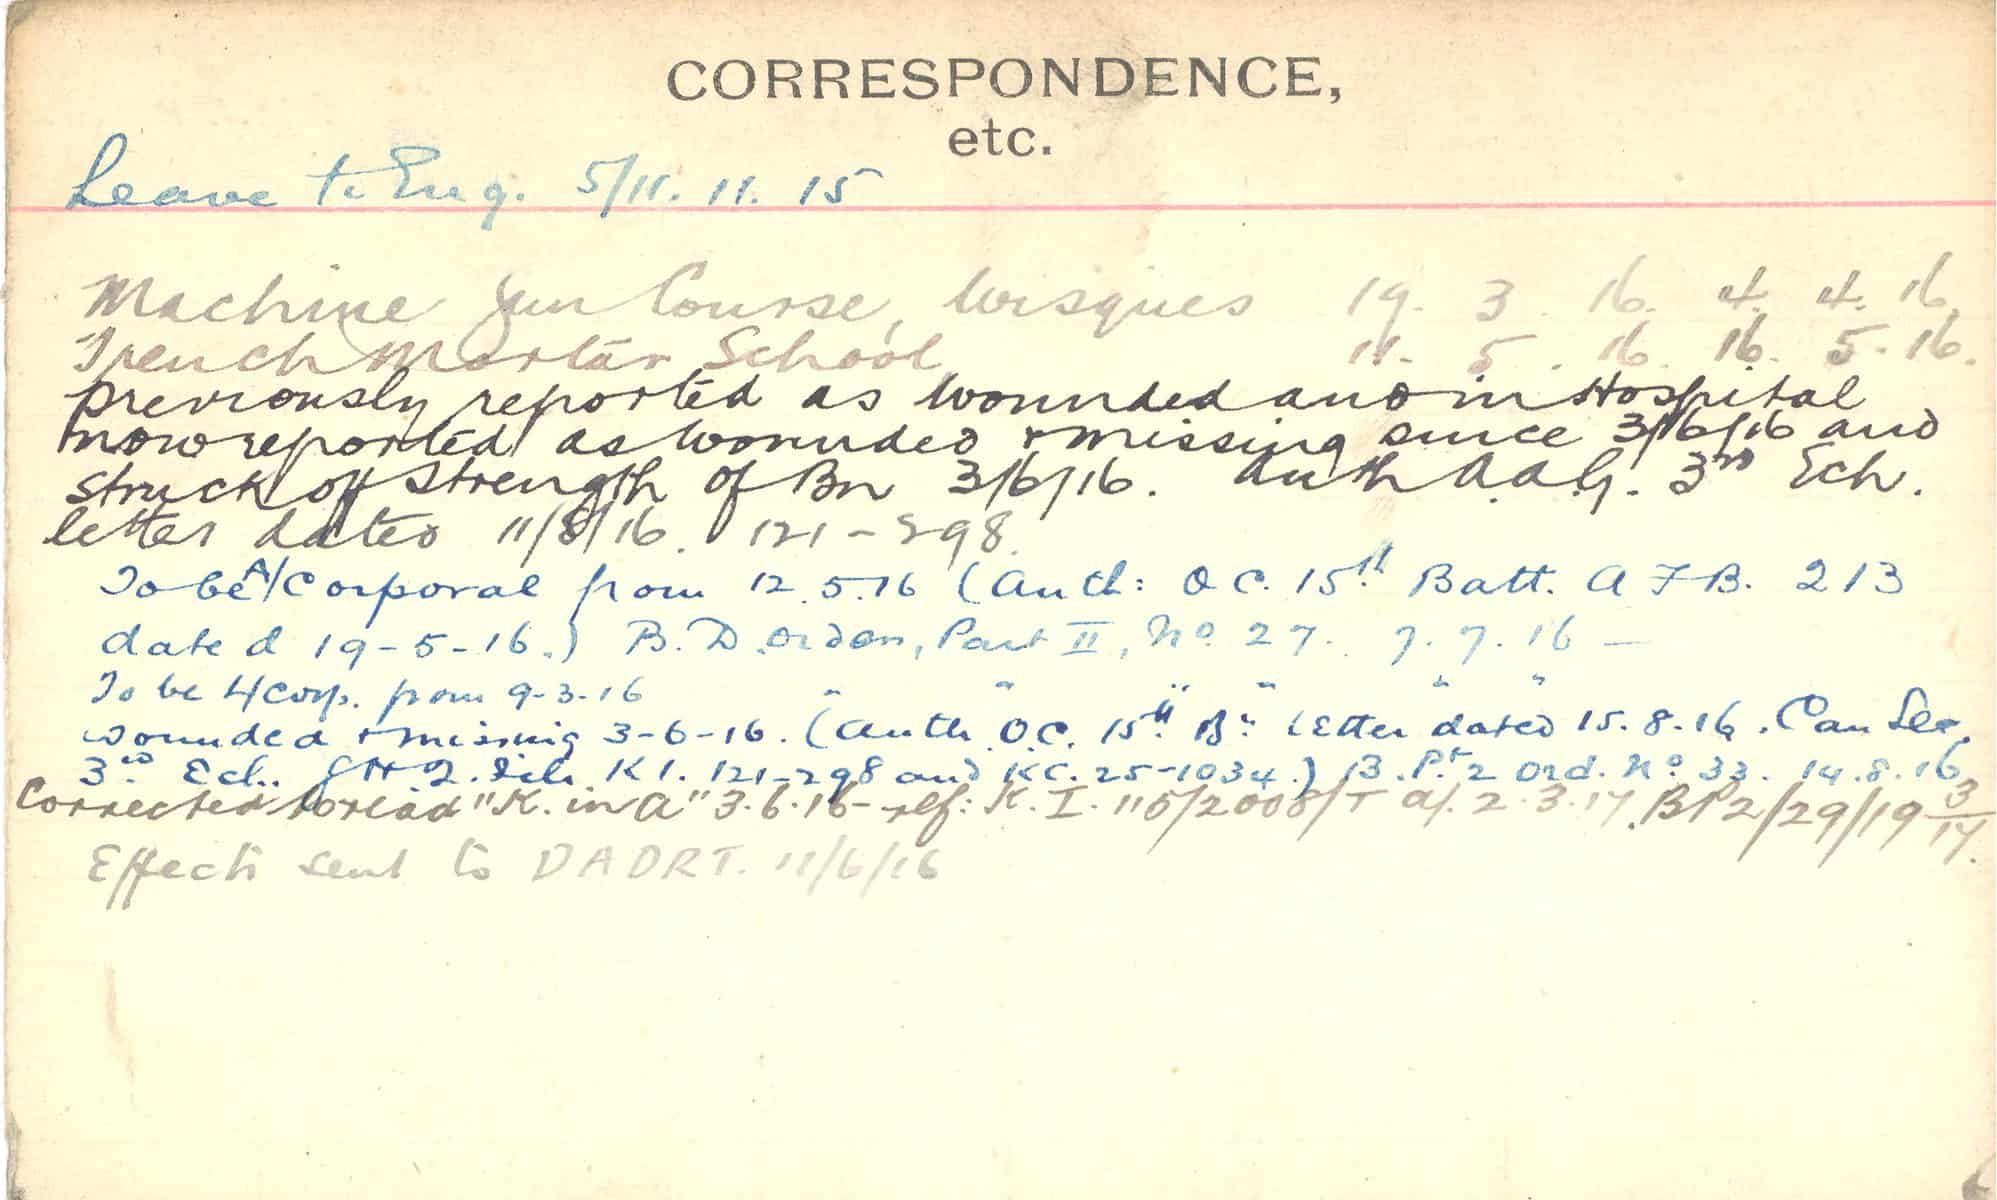 CORRESPONDENCE,
etc.
Leave to Eng. 5/11. 11. 15
Machine Gun Course, Wisques 19. 3. 16. 4. 4. 16.
Trench Mortar School 11. 5. 16. 16. 5. 16.
Previously reported as wounded and in Hospital
now reported as wounded & missing since 3/6/16 and
struck off strength of Bn 3/6/16. Auth A.A.G. 3rd Ech.
letter dated 11/8/16. 121-298.
To be A/Corporal from 12.5.16 (Auth: O C. 15th Batt. A F B. 213
dated 19-5-16.) B. D. Orders, Part II, No. 27. 7. 7. 16 —
To be L/Corp. from 9-3-16 " " " " " "
wounded & missing 3-6-16. (Auth O.C. 15th Bn letter dated 15.8.16. Can Sec.
3rd Ech. GHQ. file K1. 121-298 and KC. 25-1034.) B. Pt 2 Ord. No 33. 14.8.16
Corrected to read "K. in A" 3.6.16 - ref: K. I. 115/2008/T d/. 2.3.17. BP2/29/19 3/17.
Effects sent to DADRT. 11/6/16